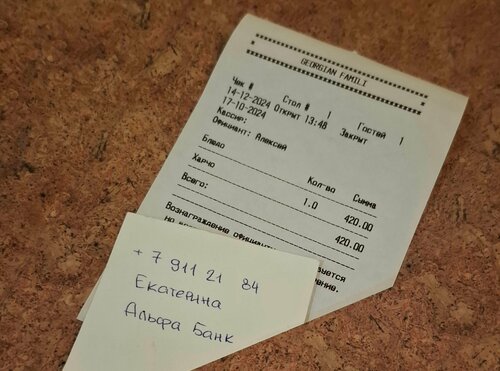 GEORGIAN FAMILI
Чек #
Стол # 1
Гостей 1
14-12-2024 Открыт 13:48 Закрыт
17-10-2024
Кассир:
Официант: Алексей
Блюдо Кол-во Сумма
Харчо 1.0 420.00
Всего: 420.00
Вознаграждение официанту
но
+7 911 21 84
Екатерина
Альфа Банк